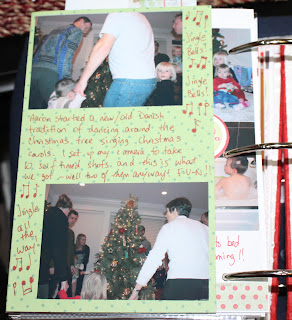 Jingle
Bells!
Jingle
Bells!
"Aaron started a new/old Danish
tradition of dancing around the
Christmas tree singing Christmas
carols. I set up my camera to take
10 self timed shots, and this is what
we got - well two of them anyways! F-U-N!
Jingle
all
the
way
bed
ming!!